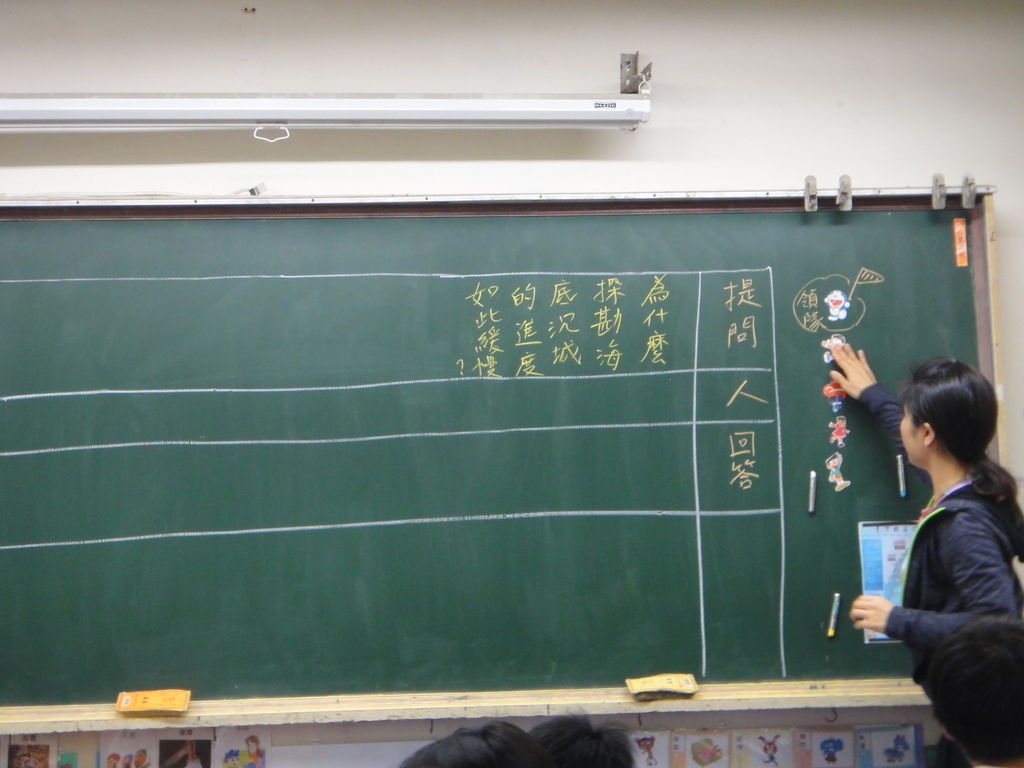 領隊
提問
人
回答
為什麼
探勘海
底沉城
的進度
如此緩慢?